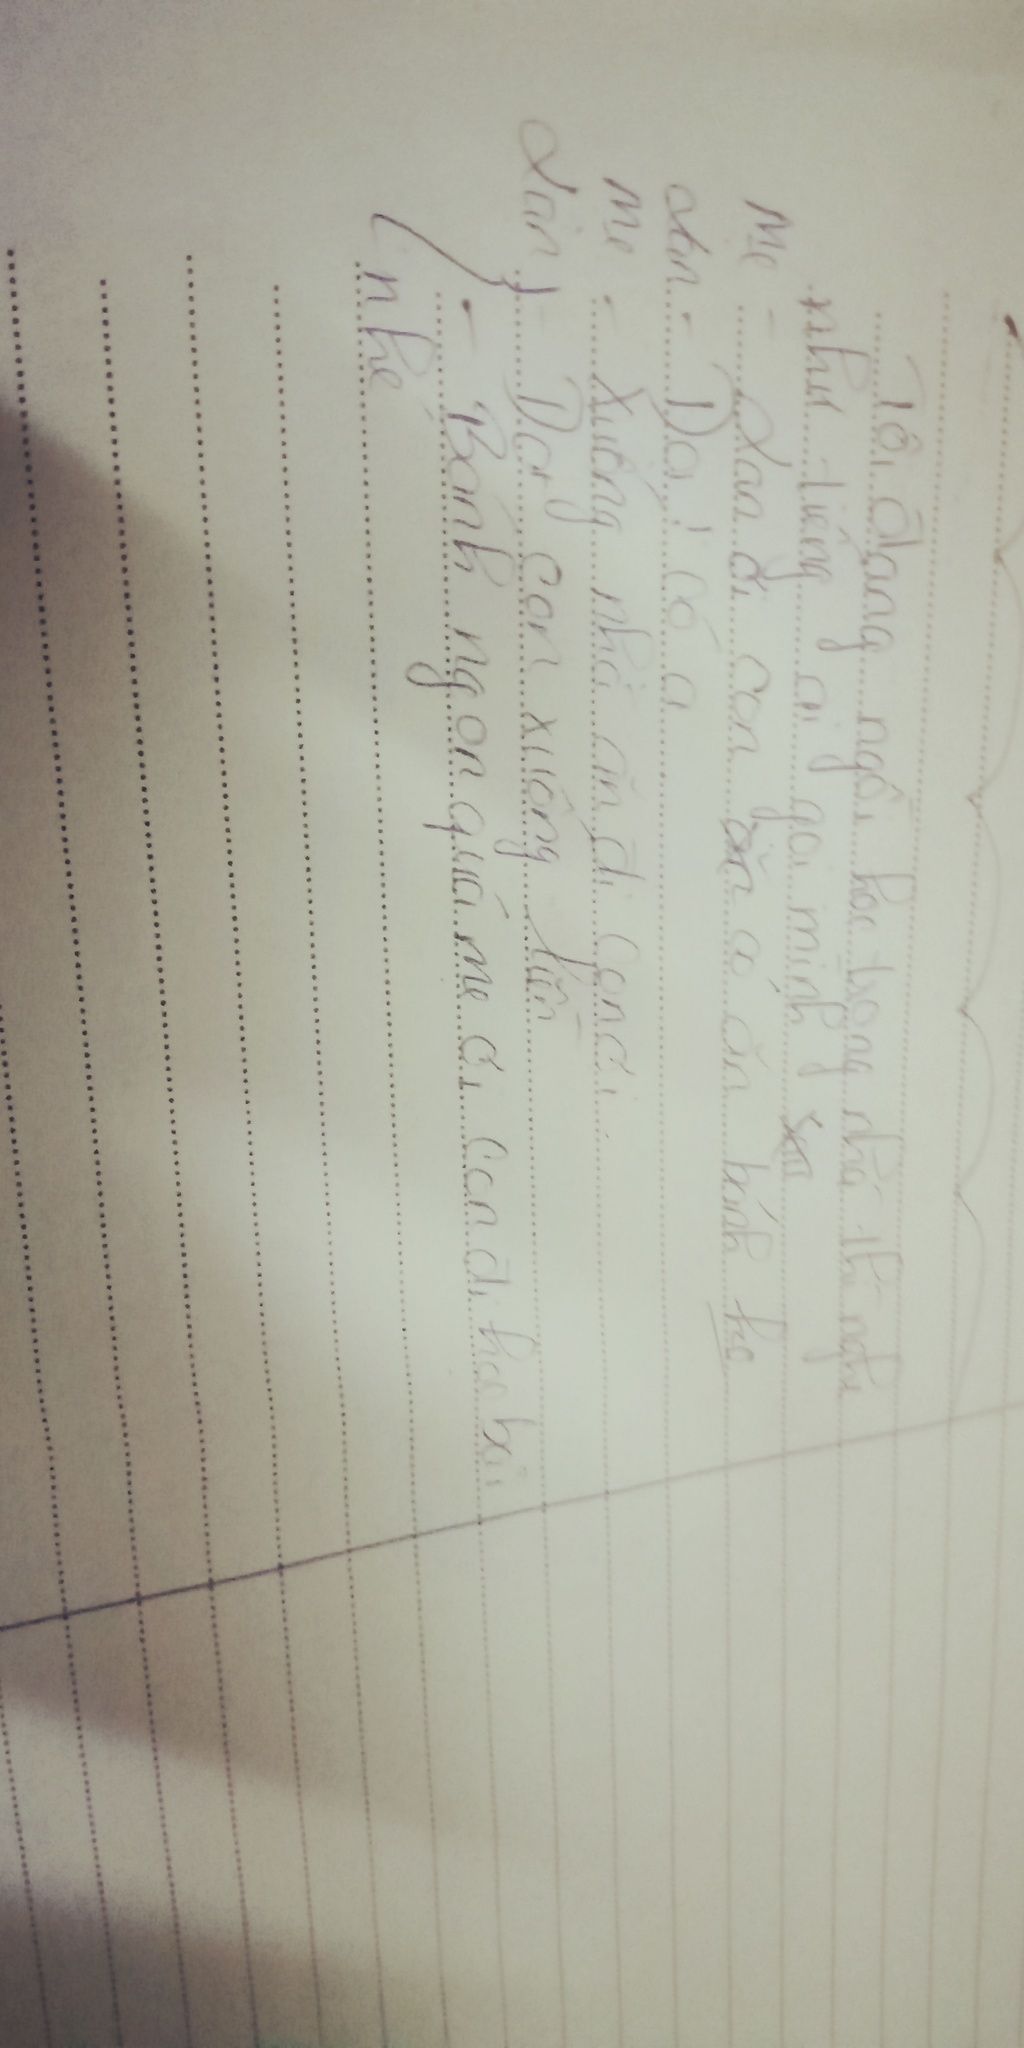 Tôi đang ngồi học trong nhà thì nghe
như tiếng ai gọi mình
Mẹ - Lan ơi con ăn bánh
Lan - Dạ! Có ạ
Mẹ - Xuống nhà ăn đi con ơi.
Lan - Dạ con xuống liền
- Bánh ngon quá mẹ ơi con đi học bài
nhé